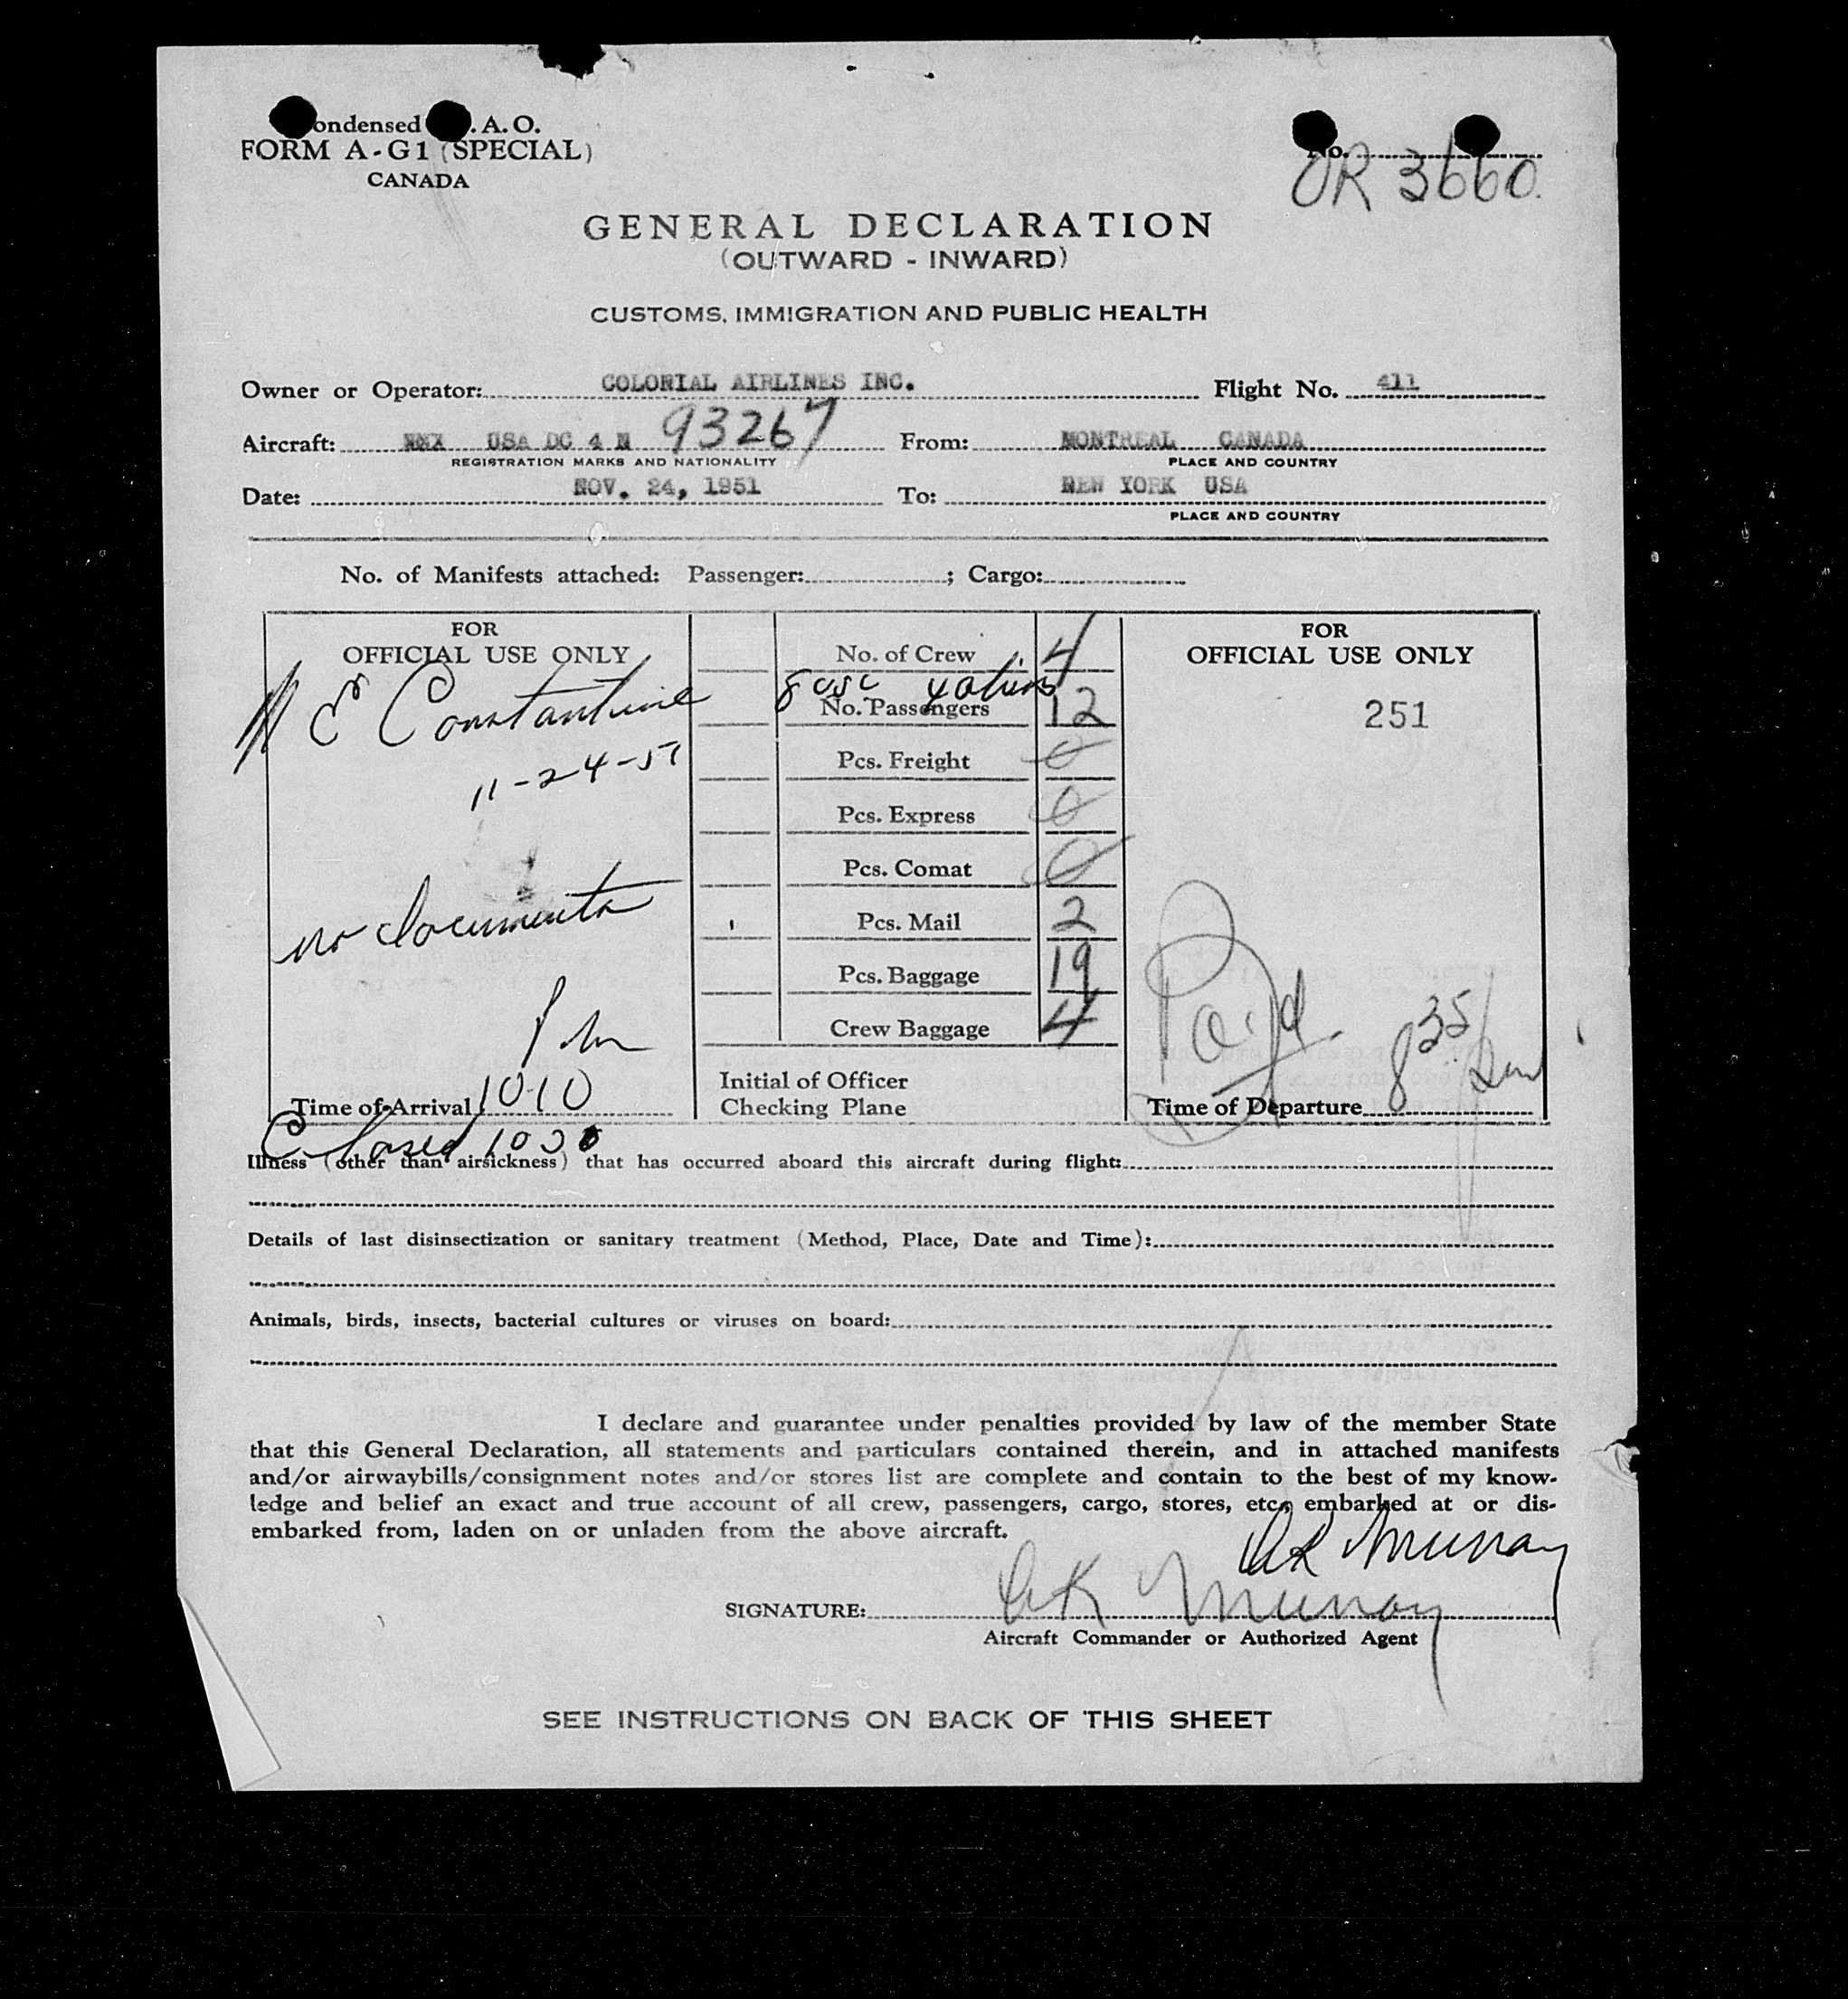 ondensed .A.O.
FORM A-G1 (SPECIAL)
CANADA
No.
OR 3660.
GENERAL DECLARATION
(OUTWARD - INWARD)
CUSTOMS, IMMIGRATION AND PUBLIC HEALTH
Owner or Operator: COLONIAL AIRLINES INC. Flight No. 411
Aircraft: USA DC 4 N 93267 From: MONTREAL CANADA
REGISTRATION MARKS AND NATIONALITY PLACE AND COUNTRY
Date: NOV. 24, 1951 To: NEW YORK USA
PLACE AND COUNTRY
No. of Manifests attached: Passenger: ; Cargo:
FOR
OFFICIAL USE ONLY
E Constantine
11-24-51
no documents
Time of Arrival 1010
Closed
No. of Crew 4
8 usc 4 aliens
No. Passengers 12
Pcs. Freight 0
Pcs. Express 0
Pcs. Comat 0
Pcs. Mail 2
Pcs. Baggage 19
Crew Baggage 4
Initial of Officer
Checking Plane
FOR
OFFICIAL USE ONLY
251
Time of Departure 8 35
Illness (other than airsickness) that has occurred aboard this aircraft during flight:
Details of last disinsectization or sanitary treatment (Method, Place, Date and Time):
Animals, birds, insects, bacterial cultures or viruses on board:
I declare and guarantee under penalties provided by law of the member State
that this General Declaration, all statements and particulars contained therein, and in attached manifests
and/or airwaybills/consignment notes and/or stores list are complete and contain to the best of my know-
ledge and belief an exact and true account of all crew, passengers, cargo, stores, etc., embarked at or dis-
embarked from, laden on or unladen from the above aircraft.
Murray
SIGNATURE: Murray
Aircraft Commander or Authorized Agent
SEE INSTRUCTIONS ON BACK OF THIS SHEET